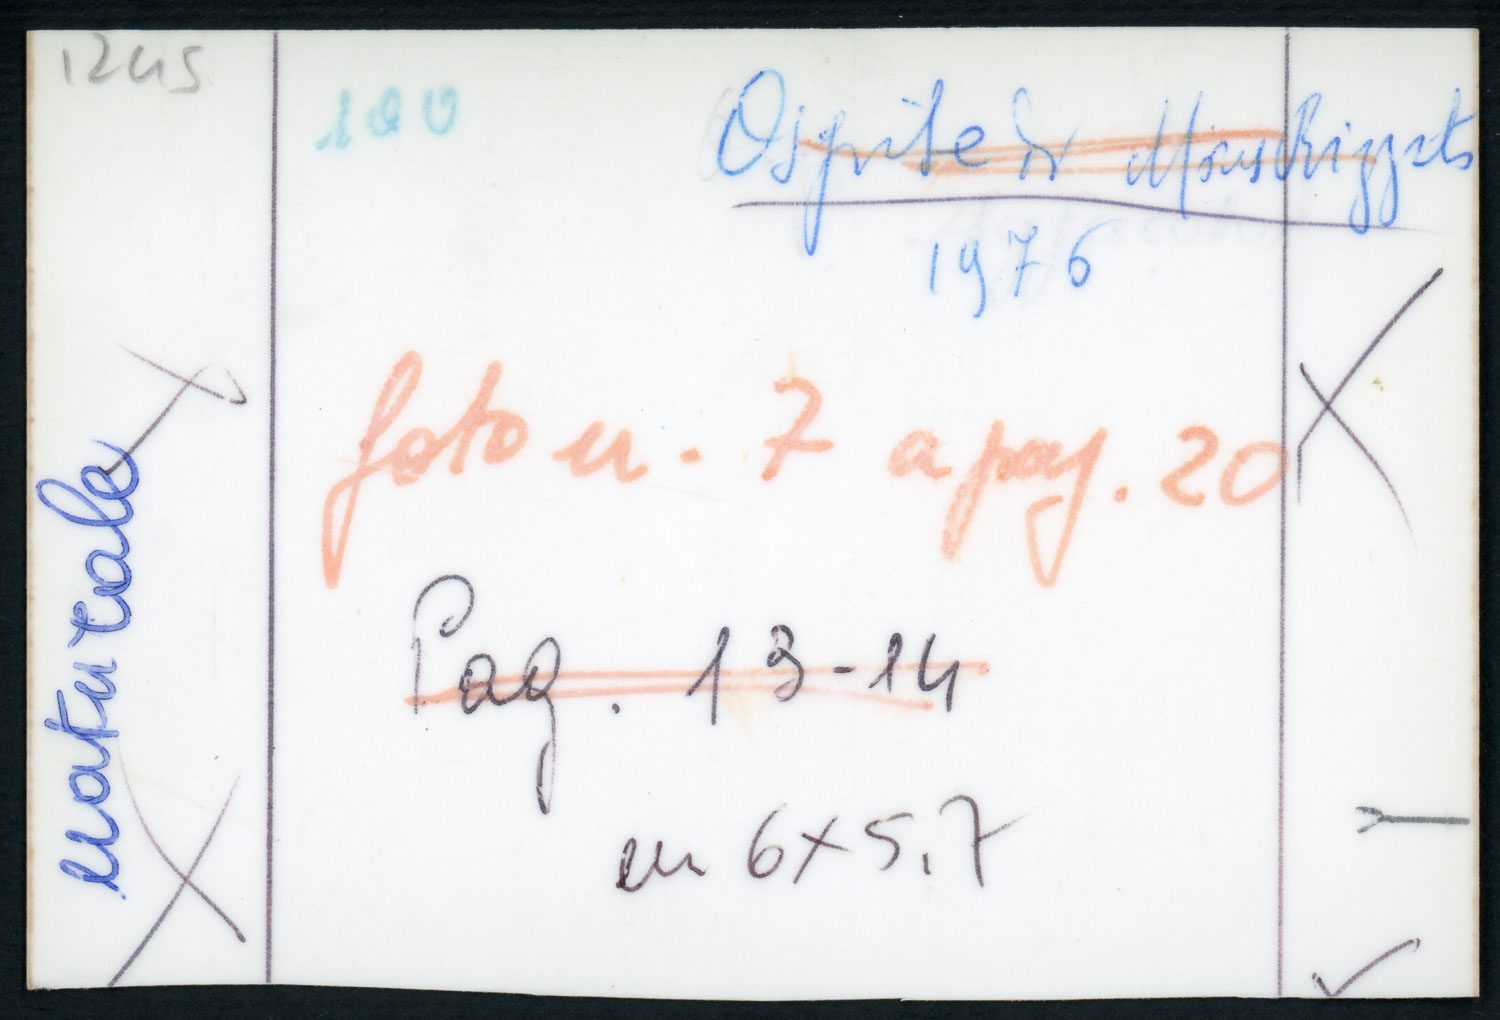 1245
100
Ospite di Mons Rizzato
1976
foto n. 7 a pag. 20
Pag. 13-14
in 6x5,7
naturale